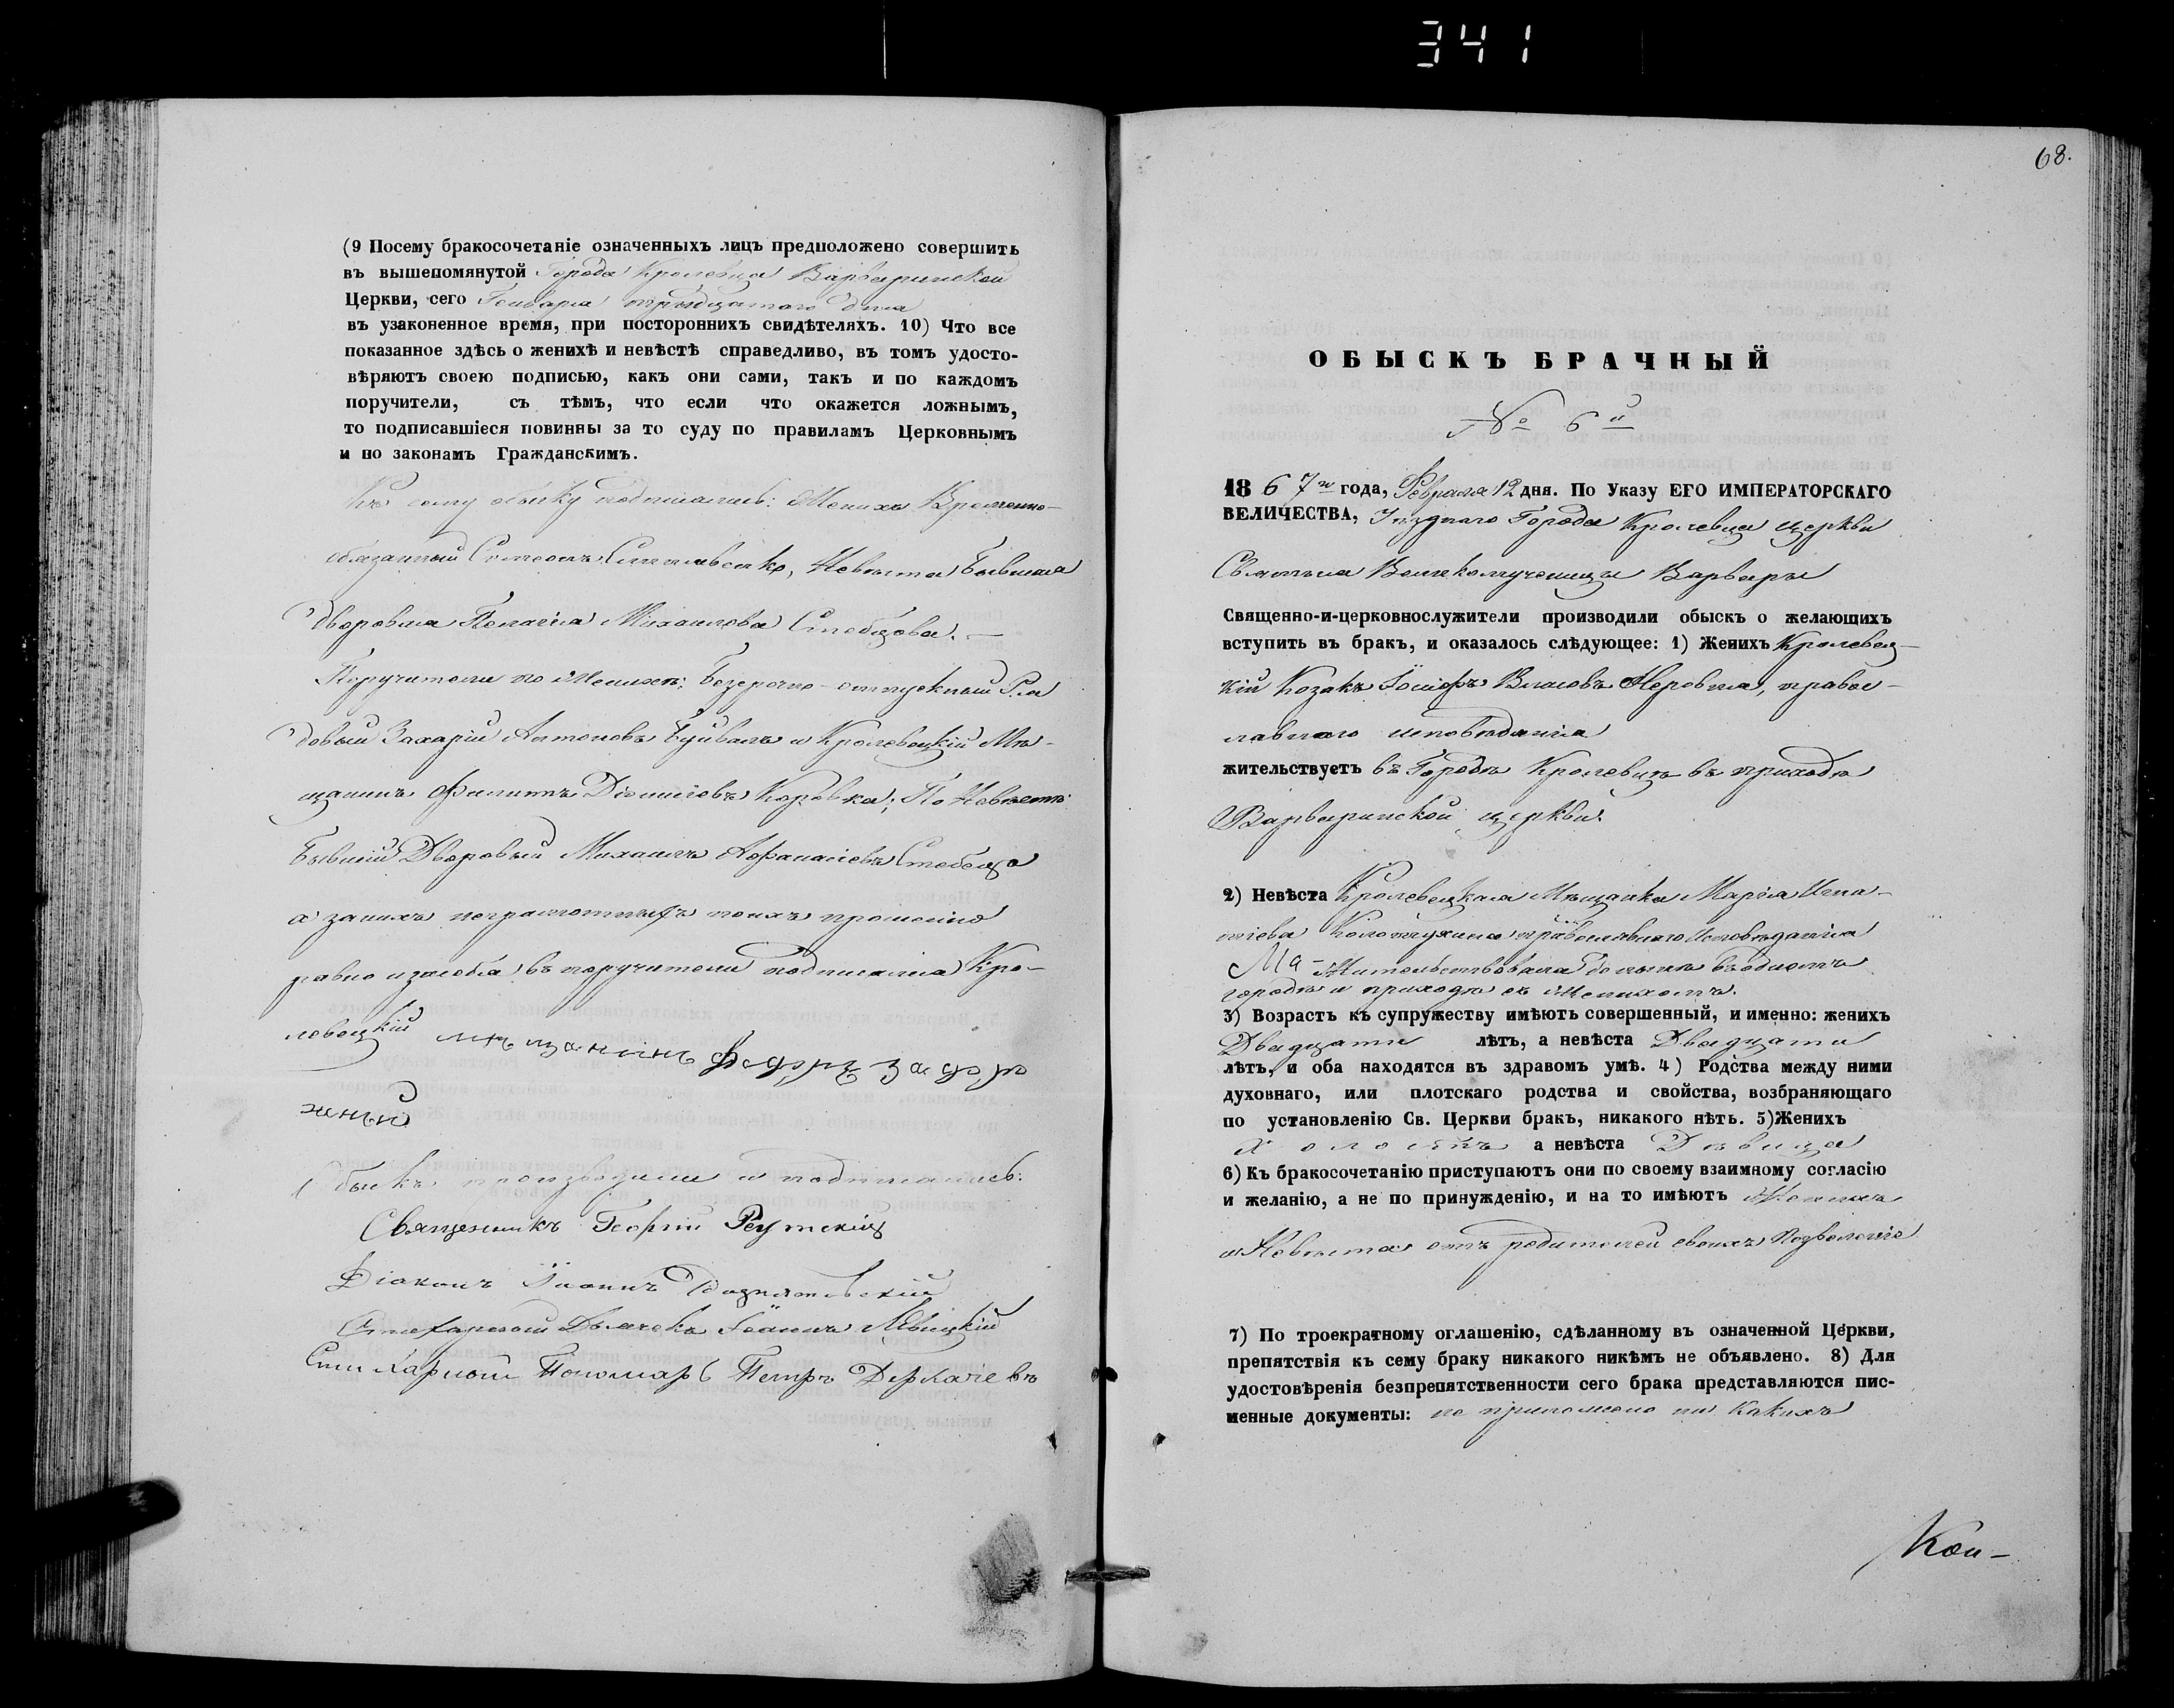 341
(9 Посему бракосочетаніе означенныхъ лицъ предположено совершить
въ вышепомянутой Города Кролевца Варваринской
Церкви, сего Генваря тридцатого дня
въ узаконенное время, при постороннихъ свидѣтеляхъ. 10) Что все
показанное здѣсь о женихѣ и невѣстѣ справедливо, въ томъ удосто-
вѣряютъ своею подписью, какъ они сами, такъ и по каждомъ
поручители, съ тѣмъ, что если что окажется ложнымъ,
то подписавшіеся повинны за то суду по правиламъ Церковнымъ
и по законамъ Гражданскимъ.
Къ сему обыску подписались: Женихъ Временно-
обязанный Симеонъ, Невѣста Бывшая
дворовая Пелагія Михаилова Стобцова.
Поручители по Женихѣ: Безсрочно-отпускный Ря
довый Захарій Антоновъ и Кролевецкій Мѣ-
щанинъ Филиппъ Діонисіевъ Коровка; По Невѣстѣ
Бывшій Дворовый Михаилъ Афанасіевъ
а за нихъ неграмотныхъ по ихъ прошенію
равно и за себя въ поручители подписался Кро-
левецкій мѣщанинъ Федоръ Задоро
жный
Обыскъ производили и подписались:
Священникъ Георгій Реутскій
Діаконъ Іоаннъ
Стихарный Дьячекъ Іоаннъ Левицкій
Стихарный Пономарь Петръ Деркачевъ
68.
ОБЫСКЪ БРАЧНЫЙ
№ 6й
1867го года, Февраля 12 дня. По Указу ЕГО ИМПЕРАТОРСКАГО
ВЕЛИЧЕСТВА, Уѣзднаго Города Кролевца церкви
Святыя Великомученицы Варвары
Священно-и-церковнослужители производили обыскъ о желающихъ
вступить въ бракъ, и оказалось слѣдующее: 1) Женихъ Кролевец-
кій Козакъ Іосифъ Власовъ Неровня, правос-
лавнаго исповѣданія
жительствуетъ въ Городѣ Кролевцѣ въ приходѣ
Варваринской церкви.
2) Невѣста Кролевецкая Мѣщанка Марія Ипа-
тіева православнаго Исповѣданія
Жительствовала до нынѣ въ одномъ
городѣ и приходѣ съ Женихомъ.
3) Возрастъ къ супружеству имѣютъ совершенный, и именно: женихъ
Двадцати лѣтъ, а невѣста Двадцати
лѣтъ, и оба находятся въ здравомъ умѣ. 4) Родства между ними
духовнаго, или плотскаго родства и свойства, возбраняющаго
по установленію Св. Церкви бракъ, никакого нѣтъ. 5)Женихъ
Холостъ а невѣста Дѣвица
6) Къ бракосочетанію приступаютъ они по своему взаимному согласію
и желанію, а не по принужденію, и на то имѣютъ Женихъ
и Невѣста отъ родителей своихъ Позволеніе
7) По троекратному оглашенію, сдѣланному въ означенной Церкви,
препятствія къ сему браку никакого никѣмъ не объявлено. 8) Для
удостовѣренія безпрепятственности сего брака представляются пис-
менные документы: не приложено ни какихъ